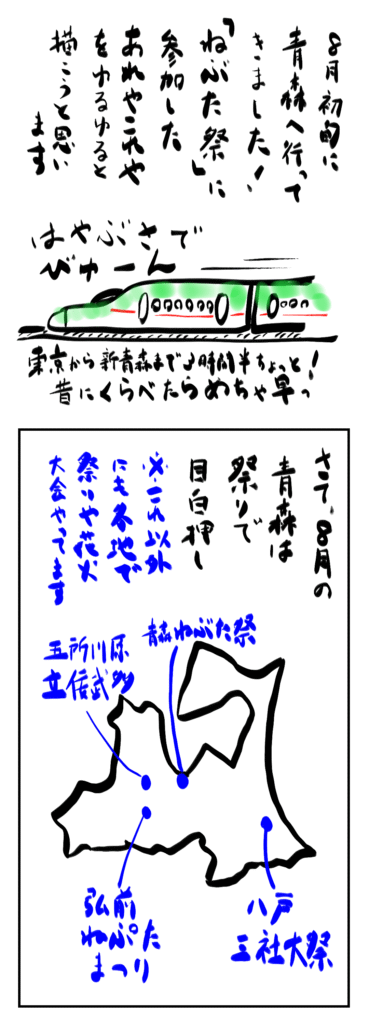 8月初旬に
青森へ行って
きました!
「ねぶた祭」に
参加した
あれやこれや
をゆるゆると
描こうと思い
ます
はやぶさで
びゅーん
東京から新青森まで3時間半ちょっと!
昔にくらべたらめちゃ早っ
さて、8月の
青森は
祭りで
目白押し
※これ以外
にも各地で
祭りや花火
大会やってます
青森ねぶた祭
五所川原
立佞武多
弘前
ねぷた
まつり
八戸
三社大祭